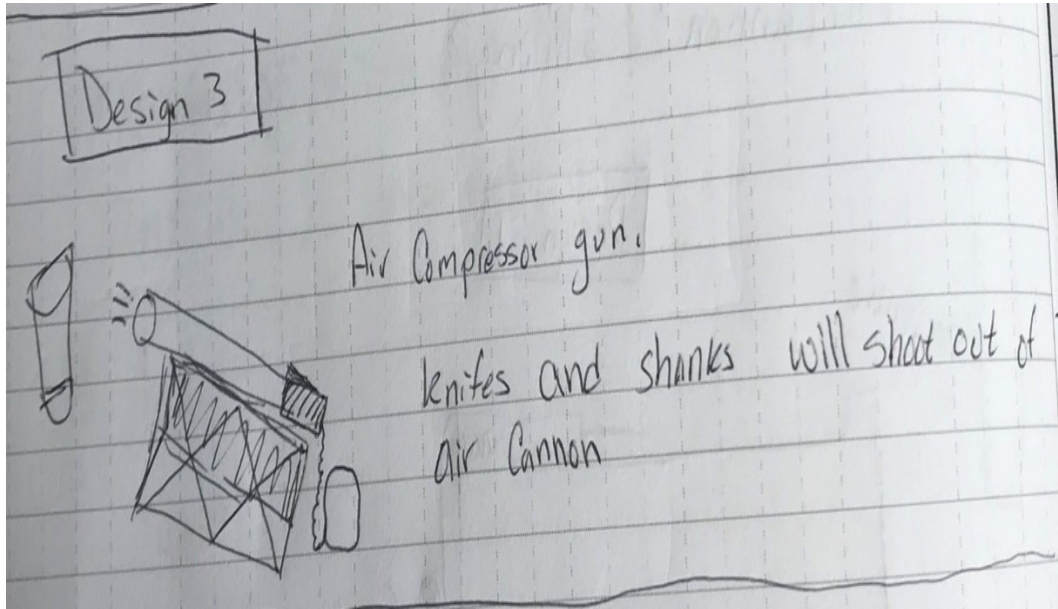 Design 3
Air Compressor gun.
knifes and shanks will shoot out of
air Cannon